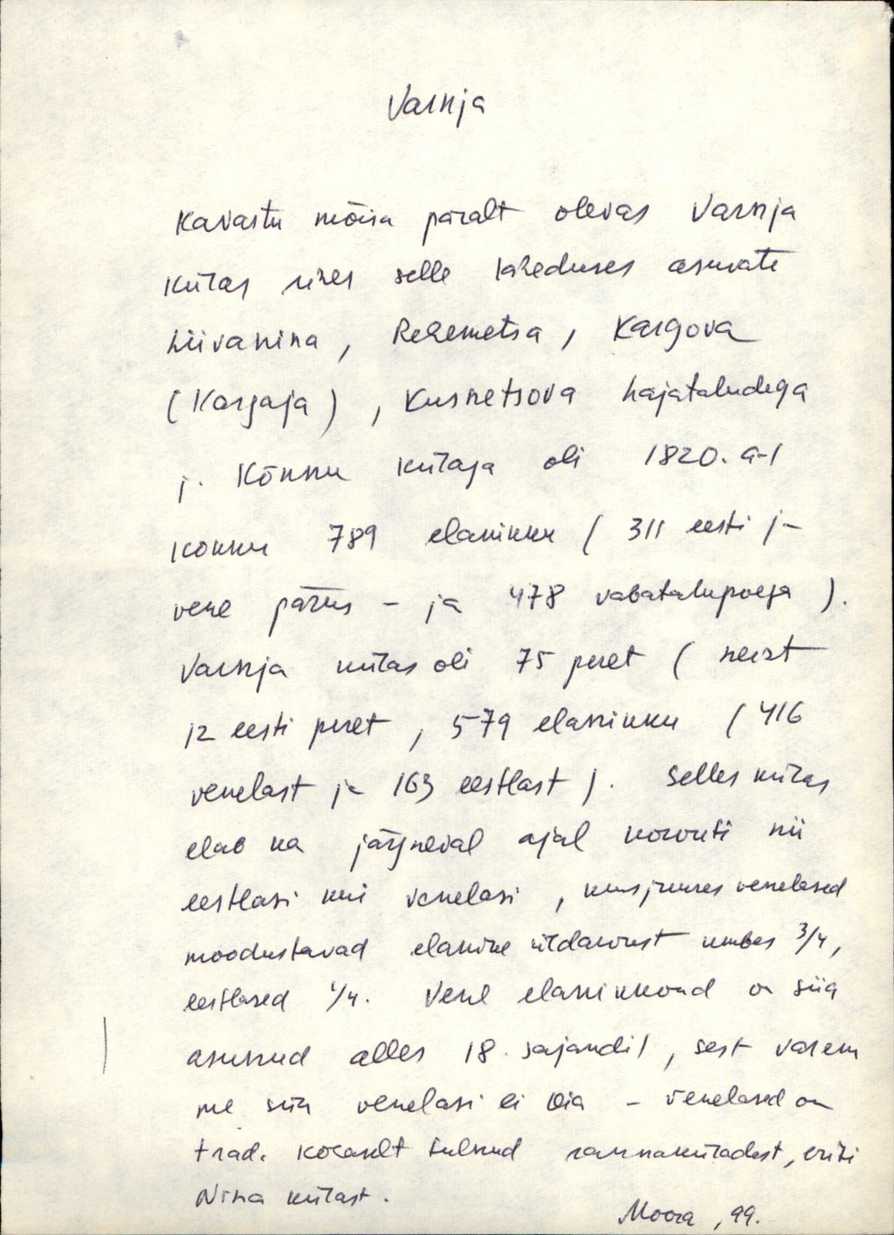 Varnja
Kavastu mõisa päralt olevas Varnja
külas ühes selle läheduses asuvate
Liivanina, Rehemetsa, Kargova
(Kargaja), Kusnetsova hajataludega
j. Kõnnu külaga oli 1820. a-l
kokku 789 elanikku (311 eesti j-
vene päris - ja 478 vabatalupoega).
Varnja külas oli 75 peret (neist
12 eesti peret, 579 elanikku (416
venelast ja 163 eestlast). Selles külas
elab ka järgneval ajal kõrvuti nii
eestlasi kui venelasi, kusjuures venelased
moodustavad elanike üldarvust umbes 3/4,
eestlased 1/4. Vene elanikkond on siia
asunud alles 18. sajandil, sest varem
me siin venelasi ei leia - venelased on
trad. kohaselt tulnud rannaküladest, eriti
Nina külast.
Moora, 99.